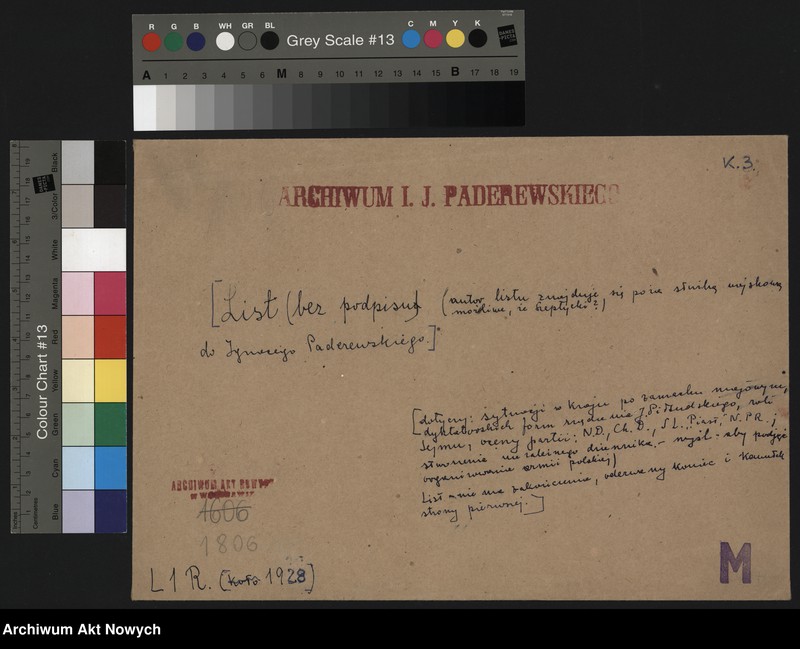 R G B WH GR BL Grey Scale #13 C M Y K
A 1 2 3 4 5 6 M 8 9 10 11 12 13 14 15 B 17 18 19
Colour Chart #13
Blue Cyan Green Yellow Red Magenta White 3/Color Black
Inches
Centimetres
K. 3.
ARCHIWUM I. J. PADEREWSKIEGO
[List (bez podpisu) (autor listu znajduje się poza służbą wojskową
możliwe, że Szeptycki?)
do Ignacego Paderewskiego.]
[dotyczy: sytuacji w kraju po zamachu majowym,
dyktatorskich form rządzenia J. Piłsudskiego, roli
Sejmu, oceny partii: N.D., Ch. D., SL. Piast, N.P.R.;
stworzenie niezależnego dziennika - myśl - aby podjąć
organizowanie armii polskiej)
List nie ma zakończenia, oderwany koniec i kawałek
strony pierwszej.]
ARCHIWUM AKT NOWYCH
w WARSZAWIE
1606
1806
L 1 R. [około 1928]
M
Archiwum Akt Nowych